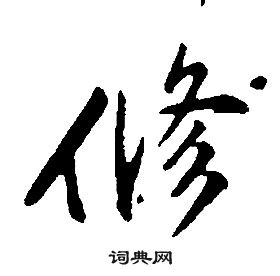 修
词典网